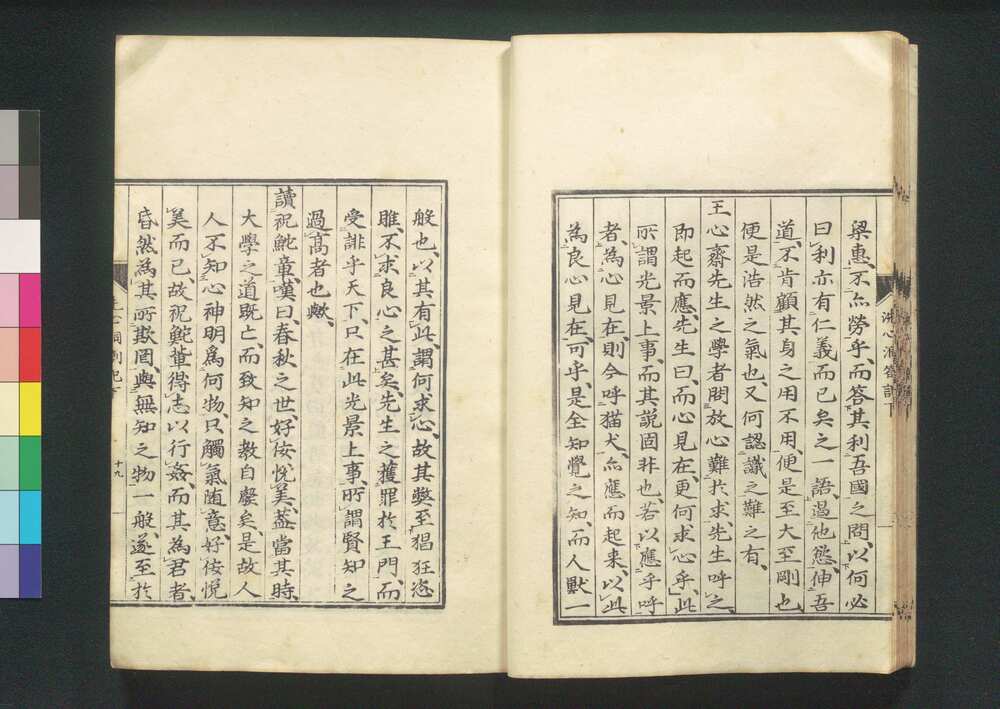 梁惠、不尒勞乎、而答其利吾國之問、以何必
曰利亦有仁義而已矣之一語、遏他慾、伸吾
道、不肯顧其身之用不用、便是至大至剛也、
便是浩然之氣也、又何認識之難之有、
王心齋先生之學者問放心難於求、先生呼之、
即起而應、先生曰、而心見在、更何求心乎、此
所謂光景上事、而其說固非也、若以應乎呼
者、為心見在、則今呼猫犬、尒應而起来、以此
為良心見在、可乎、是全知覺之知、而人獸一
般也、以其有此、謂何求心、故其獘至猖狂恣
睢、不求良心之甚矣、先生之獲罪於王門、而
受誹乎天下、只在此光景上事、所謂賢知之
過高者也歟、
讀祝鮀章、嘆曰、春秋之世、好佞悦美、蓋當其時、
大學之道既亡、而致知之教自廢矣、是故人
人不知心神明為何物、只觸氣随意、好佞悦
美而已、故祝鮀輩得志以行姦、而其為君者、
昏然為其所欺罔、與無知之物一般、遂至於
洗心洞劄記下
十九